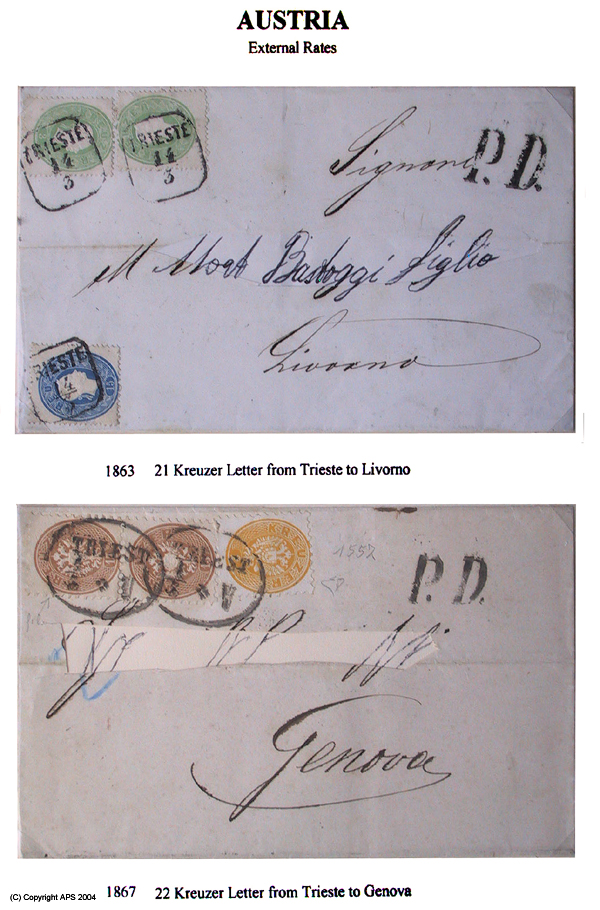 AUSTRIA
External Rates
TRIESTE
14
3
TRIESTE
14
3
Signori
P. D.
M Bastoggi Figlio
Livorno
TRIESTE
14
1863 21 Kreuzer Letter from Trieste to Livorno
TRIEST
TRIEST
KREUZER
1552
P. D.
Genova
1867 22 Kreuzer Letter from Trieste to Genova
(C) Copyright APS 2004